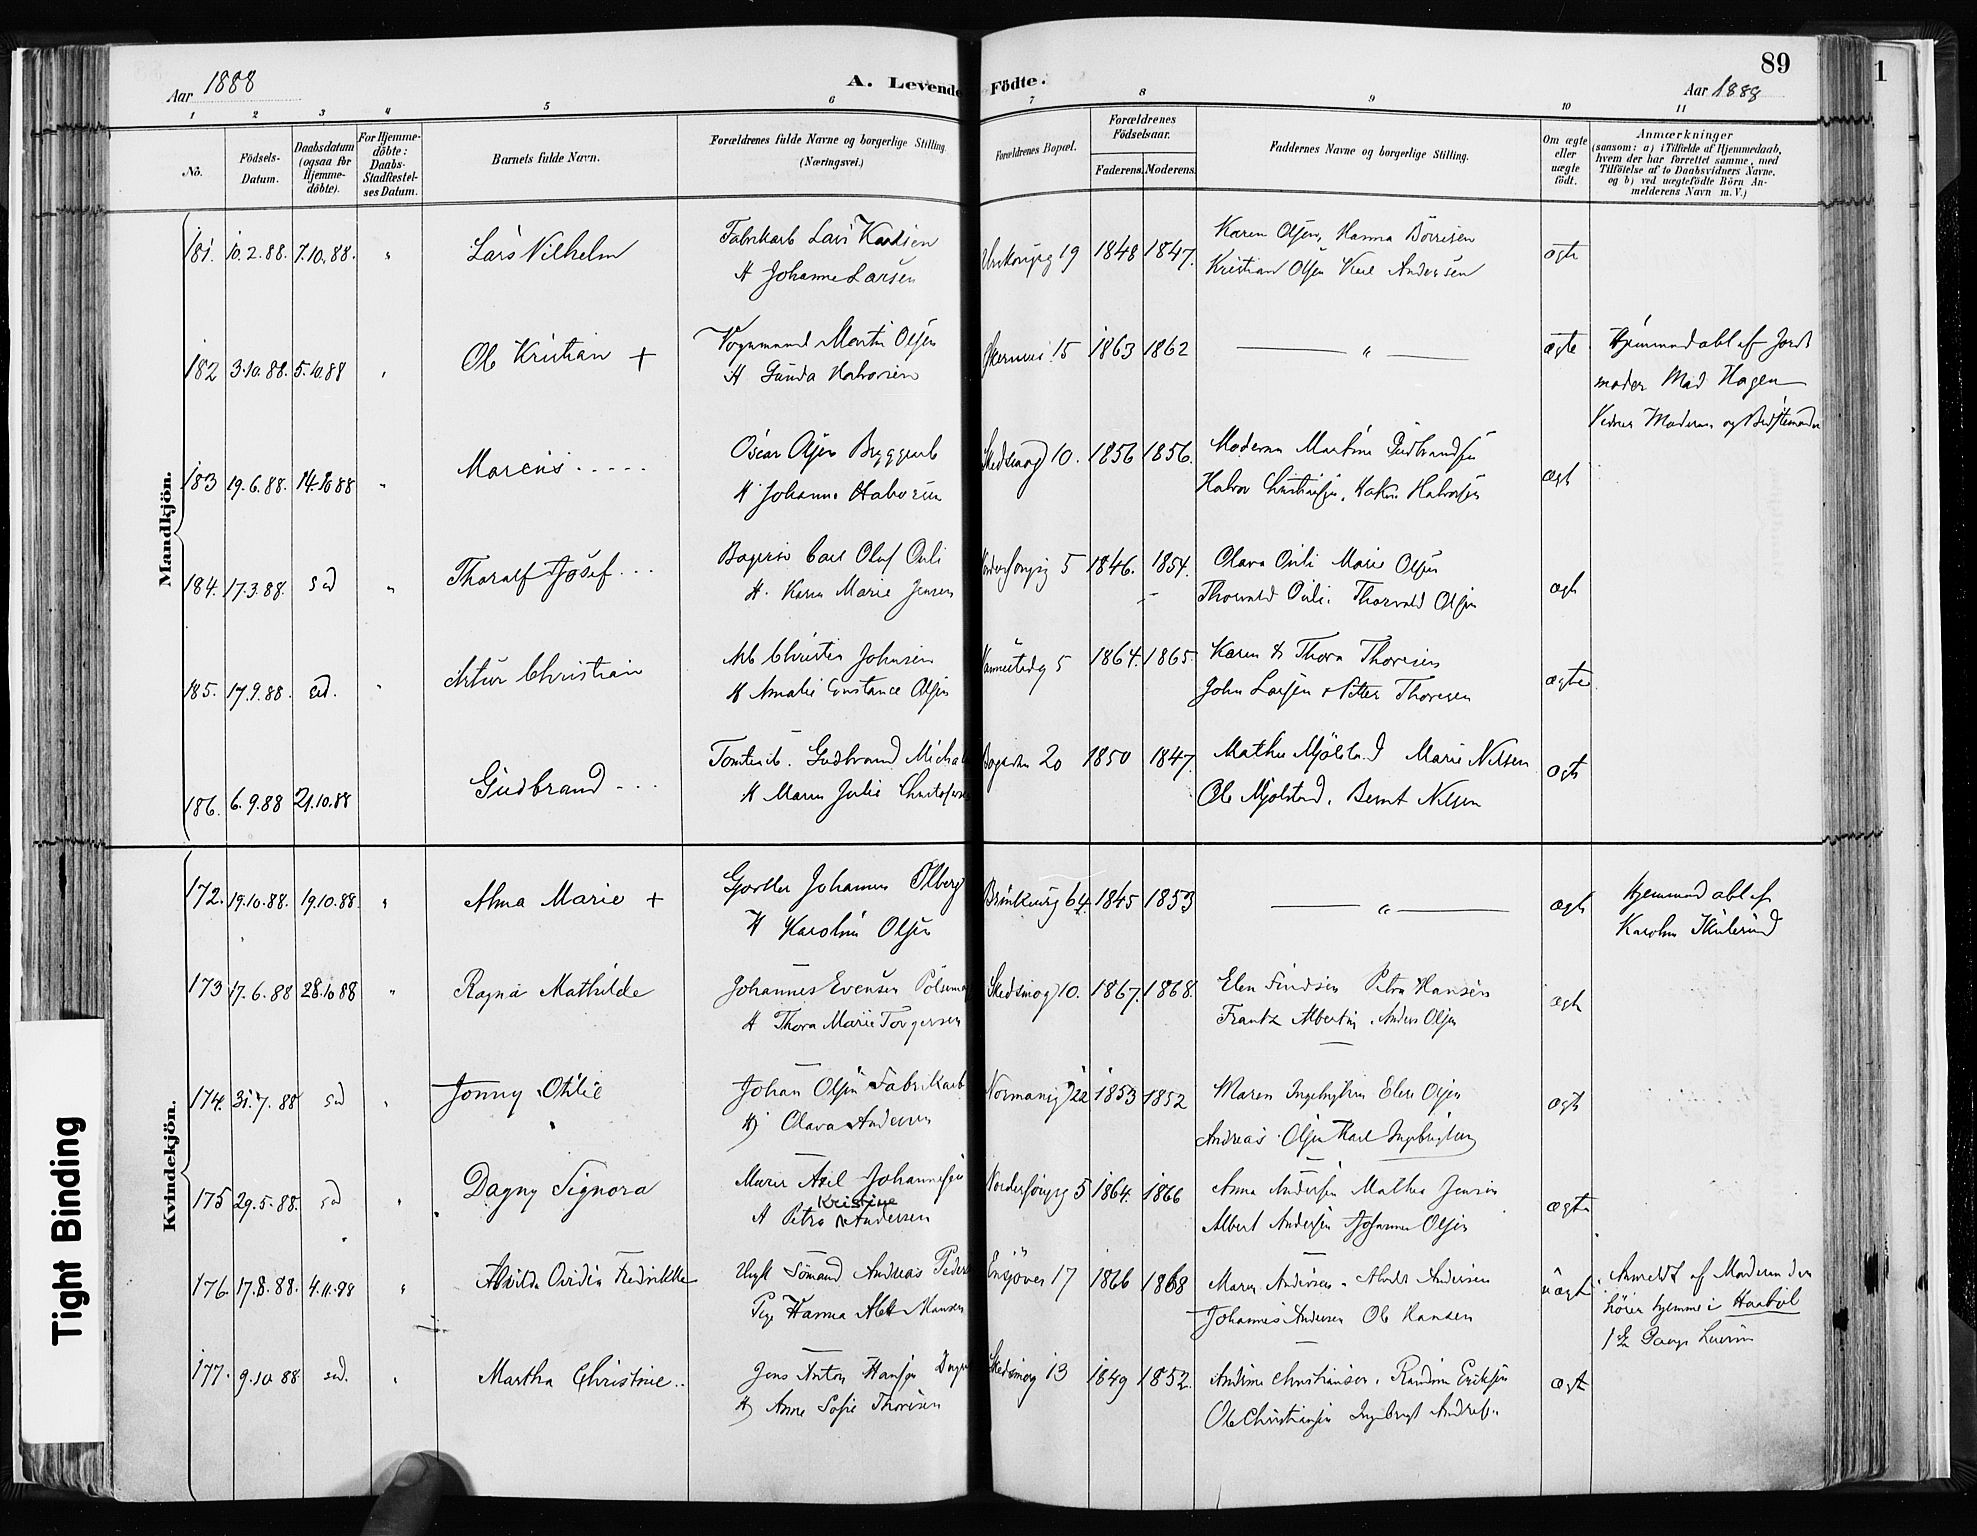 Aar 1888
A. Levende Födte.
89
Aar 1888
1
1 2 3 4 5 6 7 8 9 10 11
No.
Födsels-Datum.
Daabsdatum (ogsaa for Hjemme-döbte).
For Hjemme-döbte: Daabs-Stadfæstel-ses Datum.
Barnets fulde Navn.
Forældrenes fulde Navne og borgerlige Stilling. (Næringsvei.)
Forældrenes Bopæl.
Forældrenes Födselsaar.
Faderens. Moderens.
Faddernes Navne og borgerlige Stilling.
Om ægte eller uægte födt.
Anmærkninger
(saasom: a) i Tilfælde af Hjemmedaab,
hvem der har forrettet samme, med
Tilföielse af to Daabsvidners Navne,
og b) ved uægtefödte Börn An-
melderens Navn m. V.)
Mandkjön.
181. 10.2.88. 7.10.88. " Lars Vilhelm
H Johanne Larsen
19 1848 1847.
Karen Olsen, Hanna Börresen
Kristian Olsen Andersen
ægte
182 3.10.88. 5.10.88 Ole Kristian +
Vognmand Martin Olsen
H Gunda Halvorsen
15 1863 1862
— " —
ægte
Hjemmedöbt af Jord
moder Mad Hagen
Vidner Moderen og Bedstemoder
183 19.6.88. 14.10.88 " Marcus .....
Oscar Olsen Bryggearb
H Johanne Halvorsen
Skedsmog 10. 1856 1856.
Moderen Martine Gudbrandsen
Halvor Christiansen, Halvorsen
ægt
184. 17.3.88. sd " Tharalf Josef ...
Carl Oluf
H. Karen Marie Jensen
5 1846. 1854.
Olava Marie Olsen
Thorvald Thorvald Olsen
ægt
185. 17.9.88. sd. " Artur Christian
Arb Christen Johnsen
H Amalie Constance Olsen
5 1864. 1865.
Karen & Thora Thoresen
John Larsen & Peter Thoresen
ægte
186. 6.9.88 21.10.88 Gudbrand ...
Tomtearb. Gudbrand
H Maren Julie
20 1850 1847.
Mathea Mjölstad Marie Nilsen
Ole Mjölstad. Bernt Nilsen
ægte
Kvindekjön.
172. 19.10.88. 19.10.88. " Alma Marie +
Gjörtler Johannes
H Karoline Olsen
64. 1845 1853
— " —
ægte
Hjemmedöbt af
Karoline
173 17.6.88 28.10.88 " Ragna Mathilde
Johannes Evensen
H Thora Marie Torgersen
Skedsmog 10. 1867. 1868.
Elen Petra Hansen
Frantz Albertin. Anders Olsen
ægt
174. 31.7.88 sd " Jonny Otilie
Johan Olsen Fabrikarb
H Olava Andersen
22 1853 1852
Maren Elise Olsen
Andreas Olsen Karl Ingebrigtsen
ægte
175 29.5.88. sd " Dagny Signora
Murer Axel Johannesen
Kristine
H Petra Andersen
5 1864. 1866
Anna Andersen Mathea Jensen
Albert Andersen Johannes Olsen
ægte
176. 17.8.88. 4.11.88 " Alvilda Fredrikke
Sömand Andreas
Pige Hanna Hansen
Ensjöveien 17 1866 1868
Maren Andersen Andersen
Johannes Andersen Ole Hansen
uægt
Anmeldt af Moderen der
hörer hjemme i
177. 9.10.88. sd. " Martha Christine ..
Jens Anton Hansen
H Anne Sofie Thoresen
Skedsmog 13 1849 1852.
Andrine Christiansen. Randine Eriksen
Ole Christiansen Ingebregt
ægt
Tight Binding